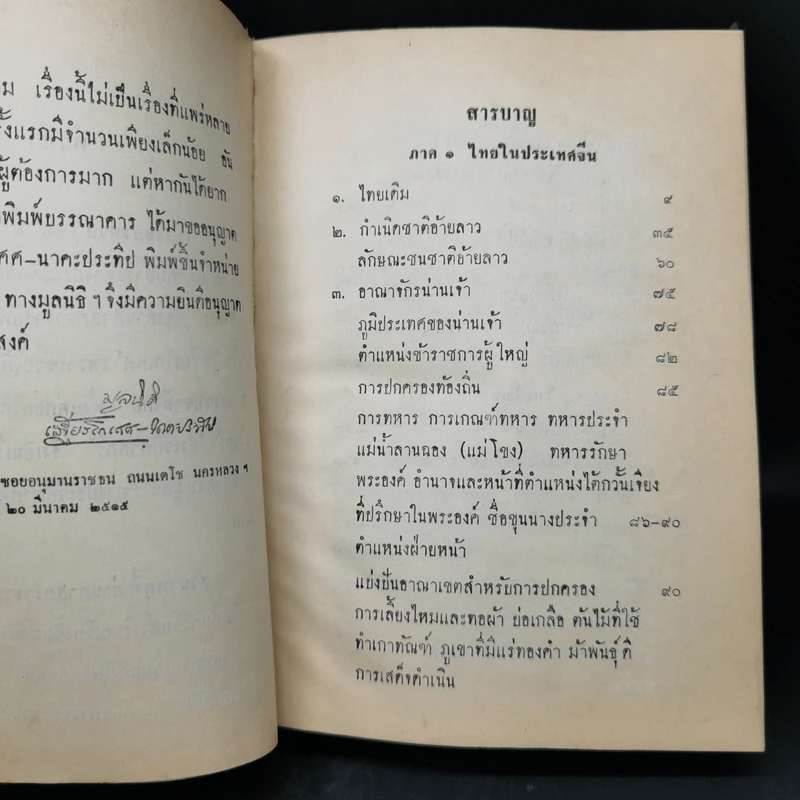 ม เรื่องนี้ไม่เป็นเรื่องที่แพร่หลาย
รั้งแรกมีจำนวนเพียงเล็กน้อย อัน
ผู้ต้องการมาก แต่หากันได้ยาก
พิมพ์บรรณาคาร ได้มาขออนุญาต
ศศ-นาคะประทีป พิมพ์ขึ้นจำหน่าย
ทางมูลนิธิ ฯ จึงมีความยินดีอนุญาต
สงค์
มูลนิธิ
เสฐียรโกเศศ-นาคะประทีป
ซอยอนุมานราชธน ถนนเดโช นครหลวง ฯ
๒๐ มีนาคม ๒๕๑๕
สารบาญ
ภาค ๑ ไทยในประเทศจีน
๑. ไทยเดิม ๙
๒. กำเนิดชาติอ้ายลาว ๓๕
ลักษณะชนชาติอ้ายลาว ๖๐
๓. อาณาจักรน่านเจ้า ๗๕
ภูมิประเทศของน่านเจ้า ๗๘
ตำแหน่งข้าราชการผู้ใหญ่ ๘๒
การปกครองท้องถิ่น ๘๕
การทหาร การเกณฑ์ทหาร ทหารประจำ
แม่น้ำลานฉอง (แม่โขง) ทหารรักษา
พระองค์ อำนาจและหน้าที่ตำแหน่งไต้กวั้นเจียง
ที่ปรึกษาในพระองค์ ชื่อขุนนางประจำ ๘๖-๙๐
ตำแหน่งฝ่ายหน้า
แบ่งปันอาณาเขตสำหรับการปกครอง ๙๐
การเลี้ยงไหมและทอผ้า บ่อเกลือ ต้นไม้ที่ใช้
ทำเกาทัณฑ์ ภูเขาที่มีแร่ทองคำ ม้าพันธุ์ดี
การเสด็จดำเนิน